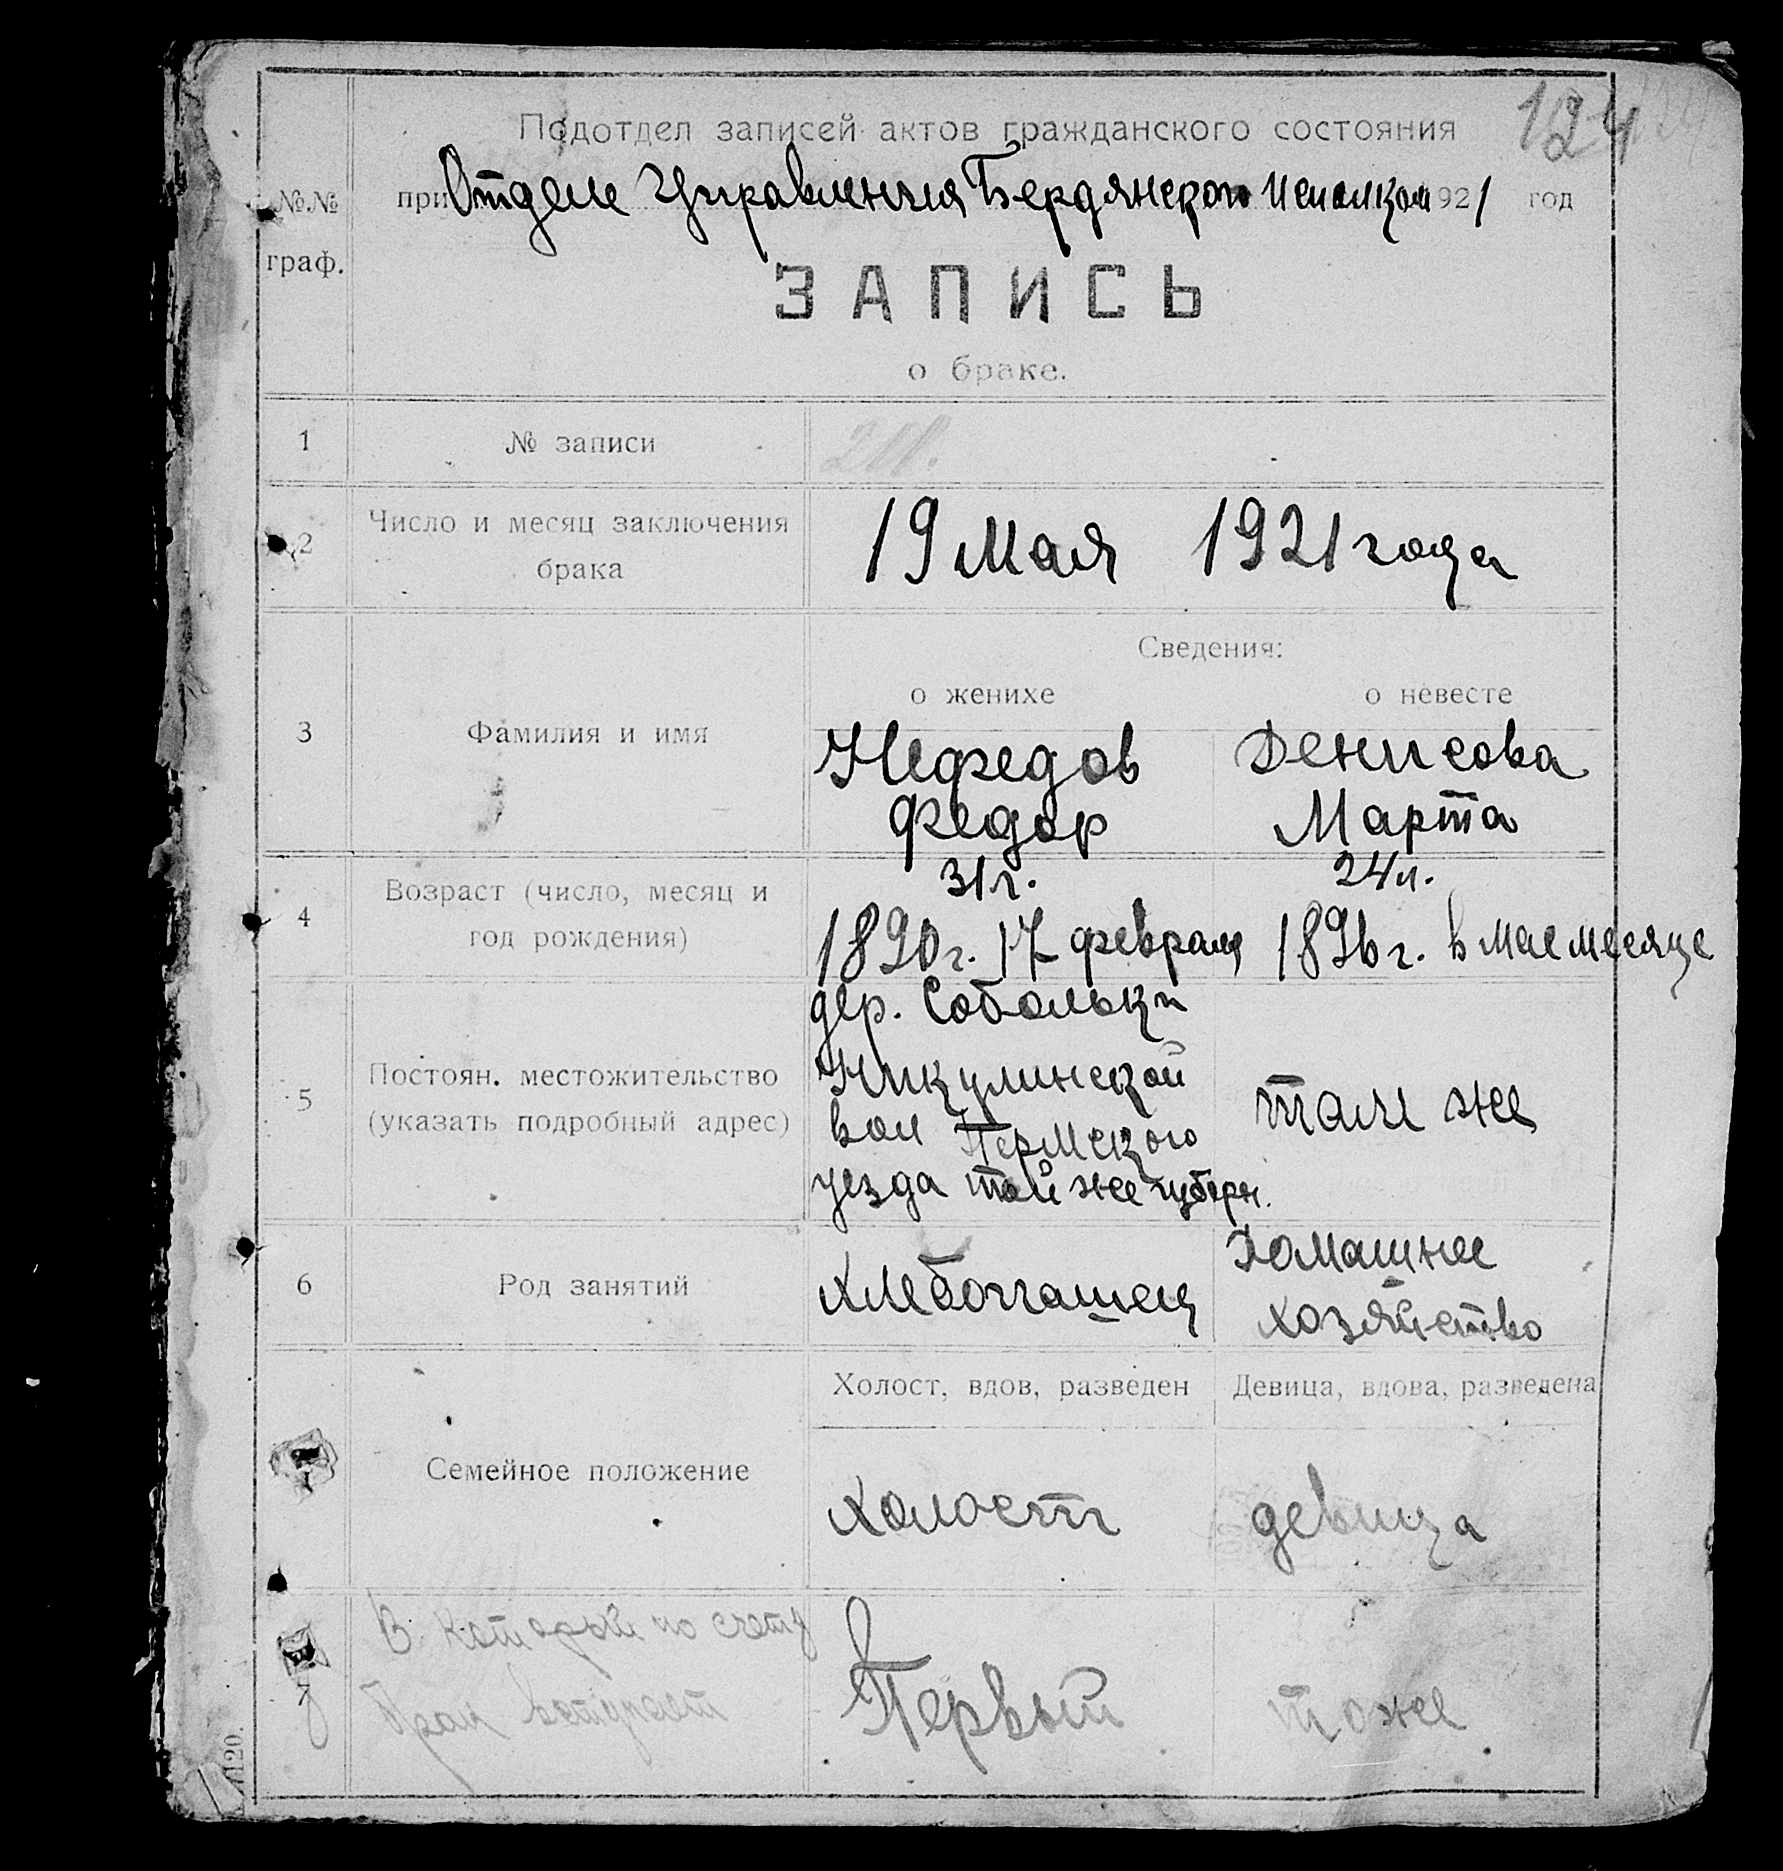 124
Подотдел записей актов гражданского состояния
№№ граф.
при Отделе Управления Бердянского Исполком 1921 год
ЗАПИСЬ
о браке.
1 № записи
2 Число и месяц заключения брака
19 Мая 1921 года
Сведения:
о женихе о невесте
3 Фамилия и имя
Нефедов Денисова
Федор Марта
4 Возраст (число, месяц и год рождения)
31 г. 24 л.
1890 г. 17 февраля 1896 г. в мае месяце
5 Постоян. местожительство (указать подробный адрес)
дер. Собольки
Никулинской
вол Пермского там же
уезда той же губерн.
6 Род занятий
Хлебопашец Домашнее
хозяйство
Холост, вдов, разведен Девица, вдова, разведена
Семейное положение
Холост девица
В который по счету
брак вступает
7 Первый тоже
120.